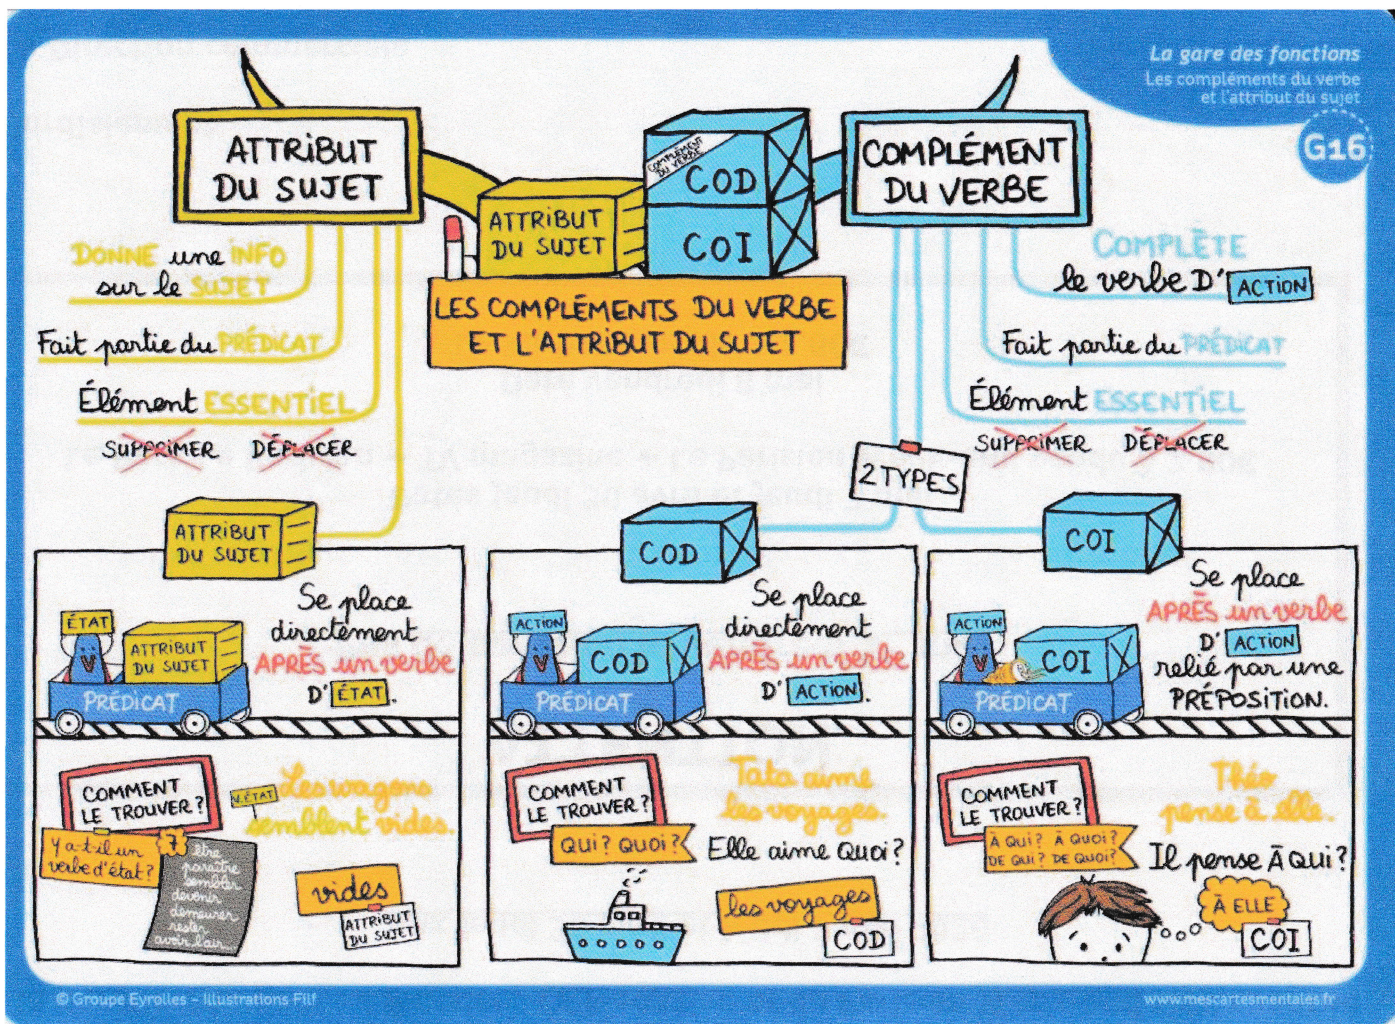 La gare des fonctions
Les compléments du verbe
et l'attribut du sujet
G16
ATTRIBUT
DU SUJET
COMPLÉMENT
DU VERBE
COMPLÉMENT
DU VERBE
COD
COI
ATTRIBUT
DU SUJET
LES COMPLÉMENTS DU VERBE
ET L'ATTRIBUT DU SUJET
DONNE une INFO
sur le SUJET
Fait partie du PRÉDICAT
Élément ESSENTIEL
SUPPRIMER DÉPLACER
COMPLÈTE
le verbe D'ACTION
Fait partie du PRÉDICAT
Élément ESSENTIEL
SUPPRIMER DÉPLACER
2 TYPES
ATTRIBUT
DU SUJET
Se place
directement
APRÈS un verbe
D'ÉTAT.
ÉTAT
ATTRIBUT
DU SUJET
PRÉDICAT
COMMENT
LE TROUVER?
Y a-t-il un
verbe d'état?
7
être
paraître
sembler
devenir
demeurer
rester
avoir l'air
V.ÉTAT
Les wagons
semblent vides.
vides
ATTRIBUT
DU SUJET
COD
Se place
directement
APRÈS un verbe
D'ACTION.
ACTION
COD
PRÉDICAT
COMMENT
LE TROUVER?
QUI? QUOI?
Tata aime
les voyages.
Elle aime QUOI?
les voyages
COD
COI
Se place
APRÈS un verbe
D'ACTION
relié par une
PRÉPOSITION.
ACTION
COI
PRÉDICAT
COMMENT
LE TROUVER?
À QUI? À QUOI?
DE QUI? DE QUOI?
Théo
pense à elle.
Il pense À QUI?
À ELLE
COI
© Groupe Eyrolles – Illustrations Filf
www.mescartesmentales.fr